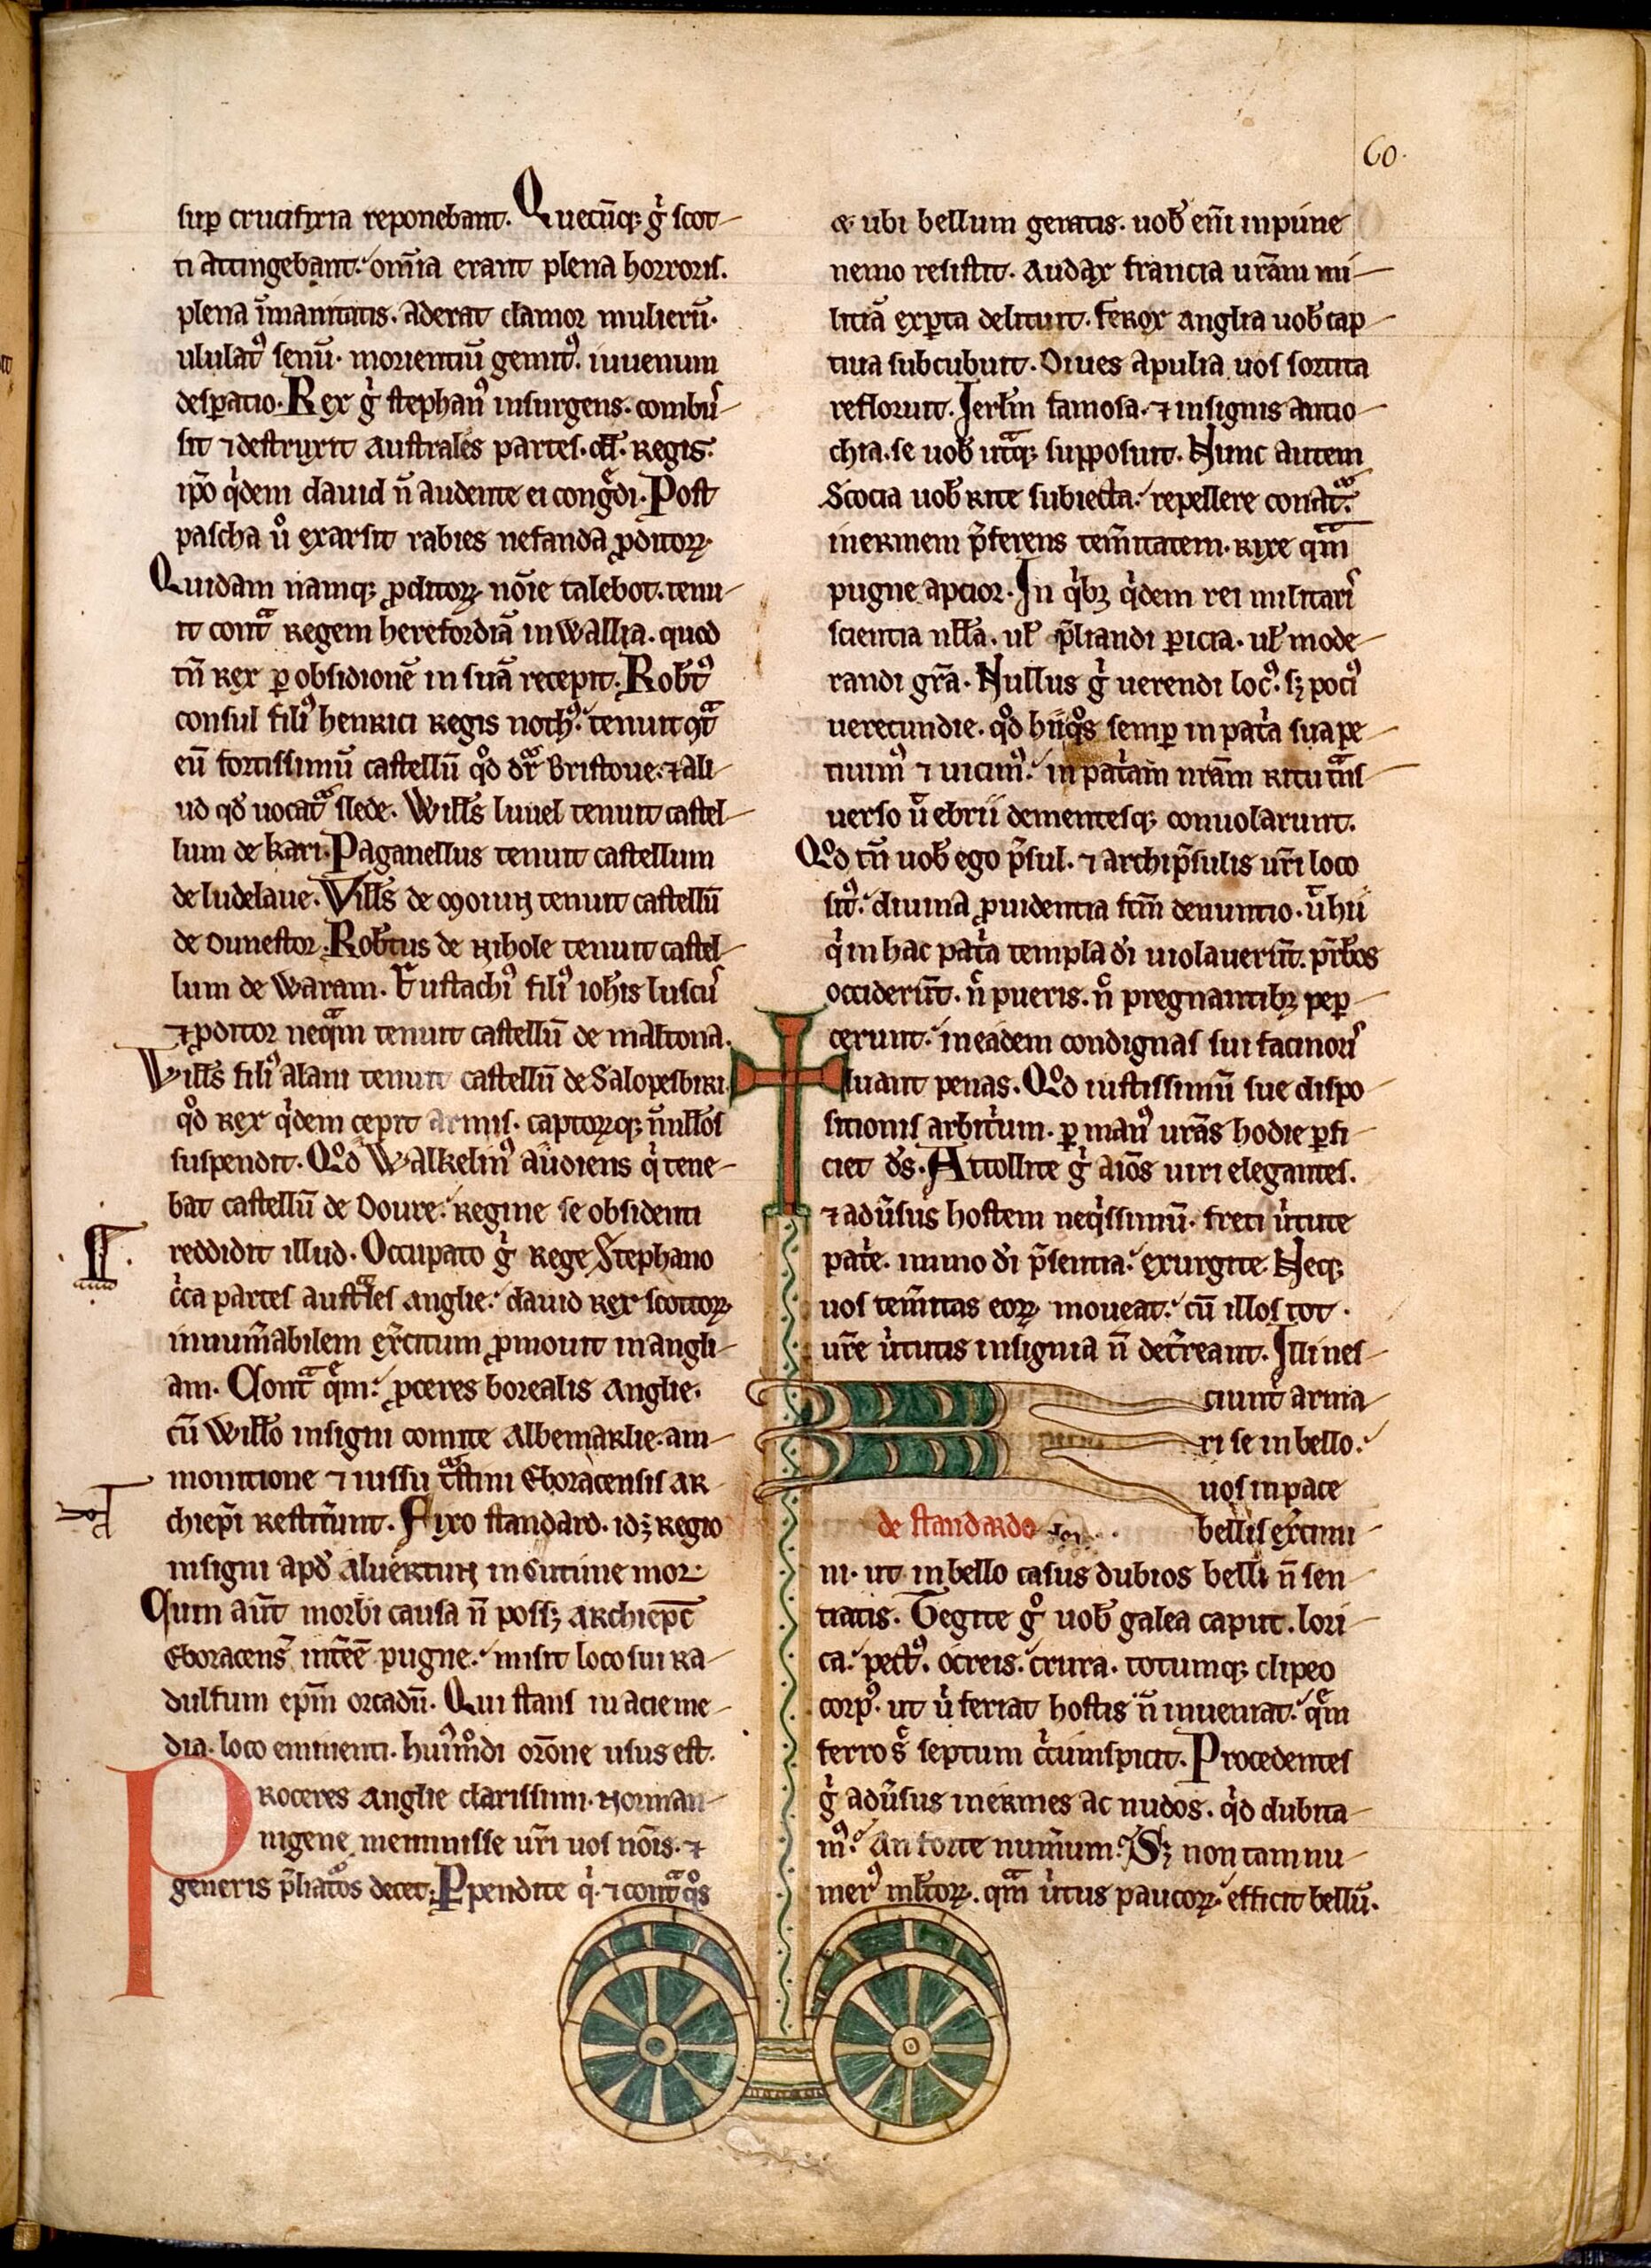 60.
sup̄ crucifixa reponebant. Quecūq; g̊ scot-
ti attingebant: om̄ia erant plena horroris.
plena īmanitatis. aderat clamor mulierū.
ululatꝰ senū. morientiū gemitꝰ. iuuenum
desꝑatio. Rex g̊ stephanꝰ insurgens. combus-
sit ⁊ destruxit australes partes. dd̄. Regis.
ip̄o q̇dem dauid n̄ audente ei cong̊di. Post
pascha ů exarsit rabies nefanda ꝓditoꝝ.
Quidam namq; ꝓditoꝝ no̅ie talebot. tenu-
it cont̾ Regem herefordiā in wallia. quod
tn̄ Rex ꝑ obsidionē in suā recepit. Rob̄tꝰ
consul filiꝰ henrici Regis nothꝰ. tenuit ꝯt̾
eū fortissimū castellū qd̊ dr̄ Bristoue. ⁊ ali-
ud qd̄ uocat̾ slede. Will̄s luuel tenuit castel-
lum de kari. Paganellus tenuit castellum
de ludelaue. Will̄s de moiun tenuit castellū
de Dunestor. Rob̄tus de Nihole tenuit castel-
lum de Waram. Eustachiꝰ filiꝰ ioh̄is luscus
⁊ ꝓditor neq̾m tenuit castellū de maltona.
Will̄s filiꝰ alani tenuit castellū de Salopesbiri
qd̊ Rex q̇dem cepit armis. captoꝝq; n̄nllōs
suspendit. Qd̊ Walkelinꝰ audiens q̇ tene-
bat castellū de Doure: Regine se obsidenti
reddidit illud. Occupato g̊ Rege Stephano
c̊ca partes aust̾les anglie: dauid Rex scottoꝝ
innum̄abilem ex̄citum ꝓmouit in angli-
am. Cont̾ q̄m: ꝓceres borealis anglie.
cū Will̄o insigni comite Albemarlie. am-
monitione ⁊ iussu t̾stini Eboracensis ar-
chiep̄i restit̄unt. Fixo standard. idꝫ Regio
insigni apd̄ aluertun in Cutune mor.
Cum aūt morbi causa n̄ possꝫ archiep̄c
Eboracens̄ int̄eē pugne: misit loco sui Ra-
dulfum ep̄m orcadū. Qui stans in acie me-
dia. loco eminenti. huiꝰmodi or̄one usus est.
Proceres Anglie clarissimi. Norman-
nigene meminisse ur̄i uos no̅is. ⁊
generis p̄liatos decet. Ppendite q̇. ⁊ cont̾ q̊s
& ubi bellum geratis. uob̄ eni̅ inpune
nemo resistit. Audax francia ur̄am mi-
litiā exꝑta delituit. ferox anglia uob̄ cap-
tiua subcubuit. Diues apulia uos sortita
refloruit. Ierl̄m famosa. ⁊ insignis antio-
chia. se uob̄ ut̾q; supposuit. Nunc autem
Scocia uob̄ Rite subiecta: repellere conat̾.
inermem p̄ferens tem̄itatem. Rixe q̾m
pugne aptior. In q̇bꝫ q̇dem rei militaris
scientia nll̄a. ul̄ p̄liandi ꝑicia. ul̄ mode-
randi gr̄a. Nullus g̊ uerendi locꝰ. sꝫ pociꝰ
uerecundie. qd̊ hii q̊s semꝑ in pat̊a sua pe-
tiuimꝰ ⁊ uicimꝰ: in pat̊am nr̄am Ritu t̾ns
uerso u̅ ebrii dementesq; conuolarunt.
Qd̊ tn̄ uob̄ ego p̄sul. ⁊ archip̄sulis ur̄i loco
sitꝰ: diuina ꝓuidentia fc̄m denuntio. u̅ hii
q̇ in hac pat̊a templa d̄i uiolauerūt. p̄sbr̄os
occiderūt. n̄ pueris. n̄ pregnantibꝫ peꝑ-
cerunt: in eadem condignas sui facinoris
luant penas. Qd̊ iustissimū sue dispo-
sitionis arbit̊um. ꝑ manꝰ ur̄as hodie ꝑfi-
ciet d̄s. Attollite g̊ aīos uiri elegantes.
⁊ adu̅sus hostem neq̇ssimū. freti u̇tute
pat̊e. immo d̄i p̄sentia: exurgite. Neq;
uos tem̄itas eoꝝ moueat: cū illos tot
ur̄e u̇tutis insignia n̄ det̄reant. Illi nes-
ciunt arma-
ri se in bello:
uos in pace
de standardo
bellis exerimi-
ni. ut in bello casus dubios belli n̄ sen-
tiatis. Tegite g̊ uob̄ galea caput. lori-
ca: pectꝰ. ocreis: crura. totumq; clipeo
corpꝰ. ut u̇ feriat hostis n̄ inueniat: q̄m
ferro s̄ septum c̊cumspicit. Procedentes
g̊ adu̅sus inermes ac nudos. q̇d dubita-
mꝰ: An forte num̄um? Sꝫ non tam nu-
merꝰ ml̄toꝝ. q̾m u̇tus paucoꝝ: efficit bellū.